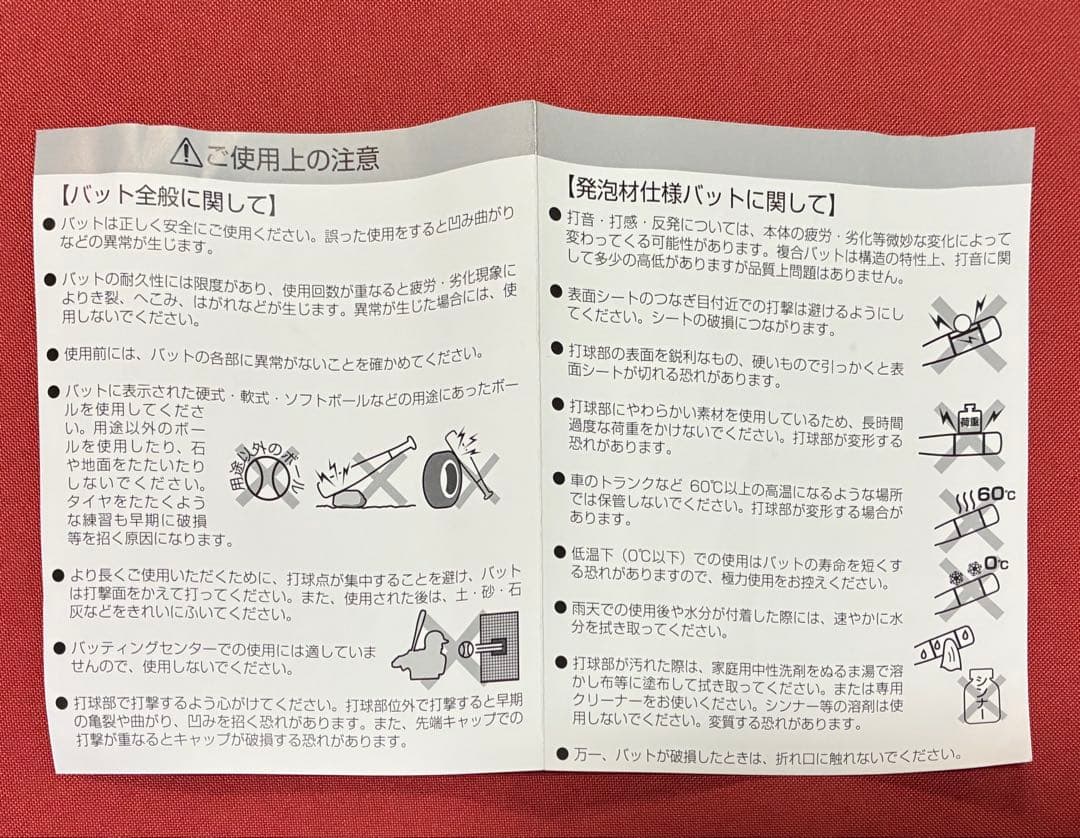 ご使用上の注意
【バット全般に関して】
●バットは正しく安全にご使用ください。誤った使用をすると凹み曲がり
などの異常が生じます。
●バットの耐久性には限度があり、使用回数が重なると疲労・劣化現象に
よりき裂、へこみ、はがれなどが生じます。異常が生じた場合には、使
用しないでください。
●使用前には、バットの各部に異常がないことを確かめてください。
●バットに表示された硬式・軟式・ソフトボールなどの用途にあったボー
ルを使用してくださ
い。用途以外のボー
ルを使用したり、石
や地面をたたいたり
しないでください。
タイヤをたたくよう
な練習も早期に破損
等を招く原因になります。
用途以外のボール
●より長くご使用いただくために、打球点が集中することを避け、バット
は打撃面をかえて打ってください。また、使用された後は、土・砂・石
灰などをきれいにふいてください。
●バッティングセンターでの使用には適していま
せんので、使用しないでください。
●打球部で打撃するよう心がけてください。打球部位外で打撃すると早期
の亀裂や曲がり、凹みを招く恐れがあります。また、先端キャップでの
打撃が重なるとキャップが破損する恐れがあります。
【発泡材仕様バットに関して】
●打音・打感・反発については、本体の疲労・劣化等微妙な変化によって
変わってくる可能性があります。複合バットは構造の特性上、打音に関
して多少の高低がありますが品質上問題はありません。
●表面シートのつなぎ目付近での打撃は避けるようにし
てください。シートの破損につながります。
●打球部の表面を鋭利なもの、硬いもので引っかくと表
面シートが切れる恐れがあります。
●打球部にやわらかい素材を使用しているため、長時間
過度な荷重をかけないでください。打球部が変形する
恐れがあります。
荷重
●車のトランクなど 60℃以上の高温になるような場所
では保管しないでください。打球部が変形する場合が
あります。
60℃
●低温下（0℃以下）での使用はバットの寿命を短くす
る恐れがありますので、極力使用をお控えください。
0℃
●雨天での使用後や水分が付着した際には、速やかに水
分を拭き取ってください。
●打球部が汚れた際は、家庭用中性洗剤をぬるま湯で溶
かし布等に塗布して拭き取ってください。または専用
クリーナーをお使いください。シンナー等の溶剤は使
用しないでください。変質する恐れがあります。
シンナー
●万一、バットが破損したときは、折れ口に触れないでください。